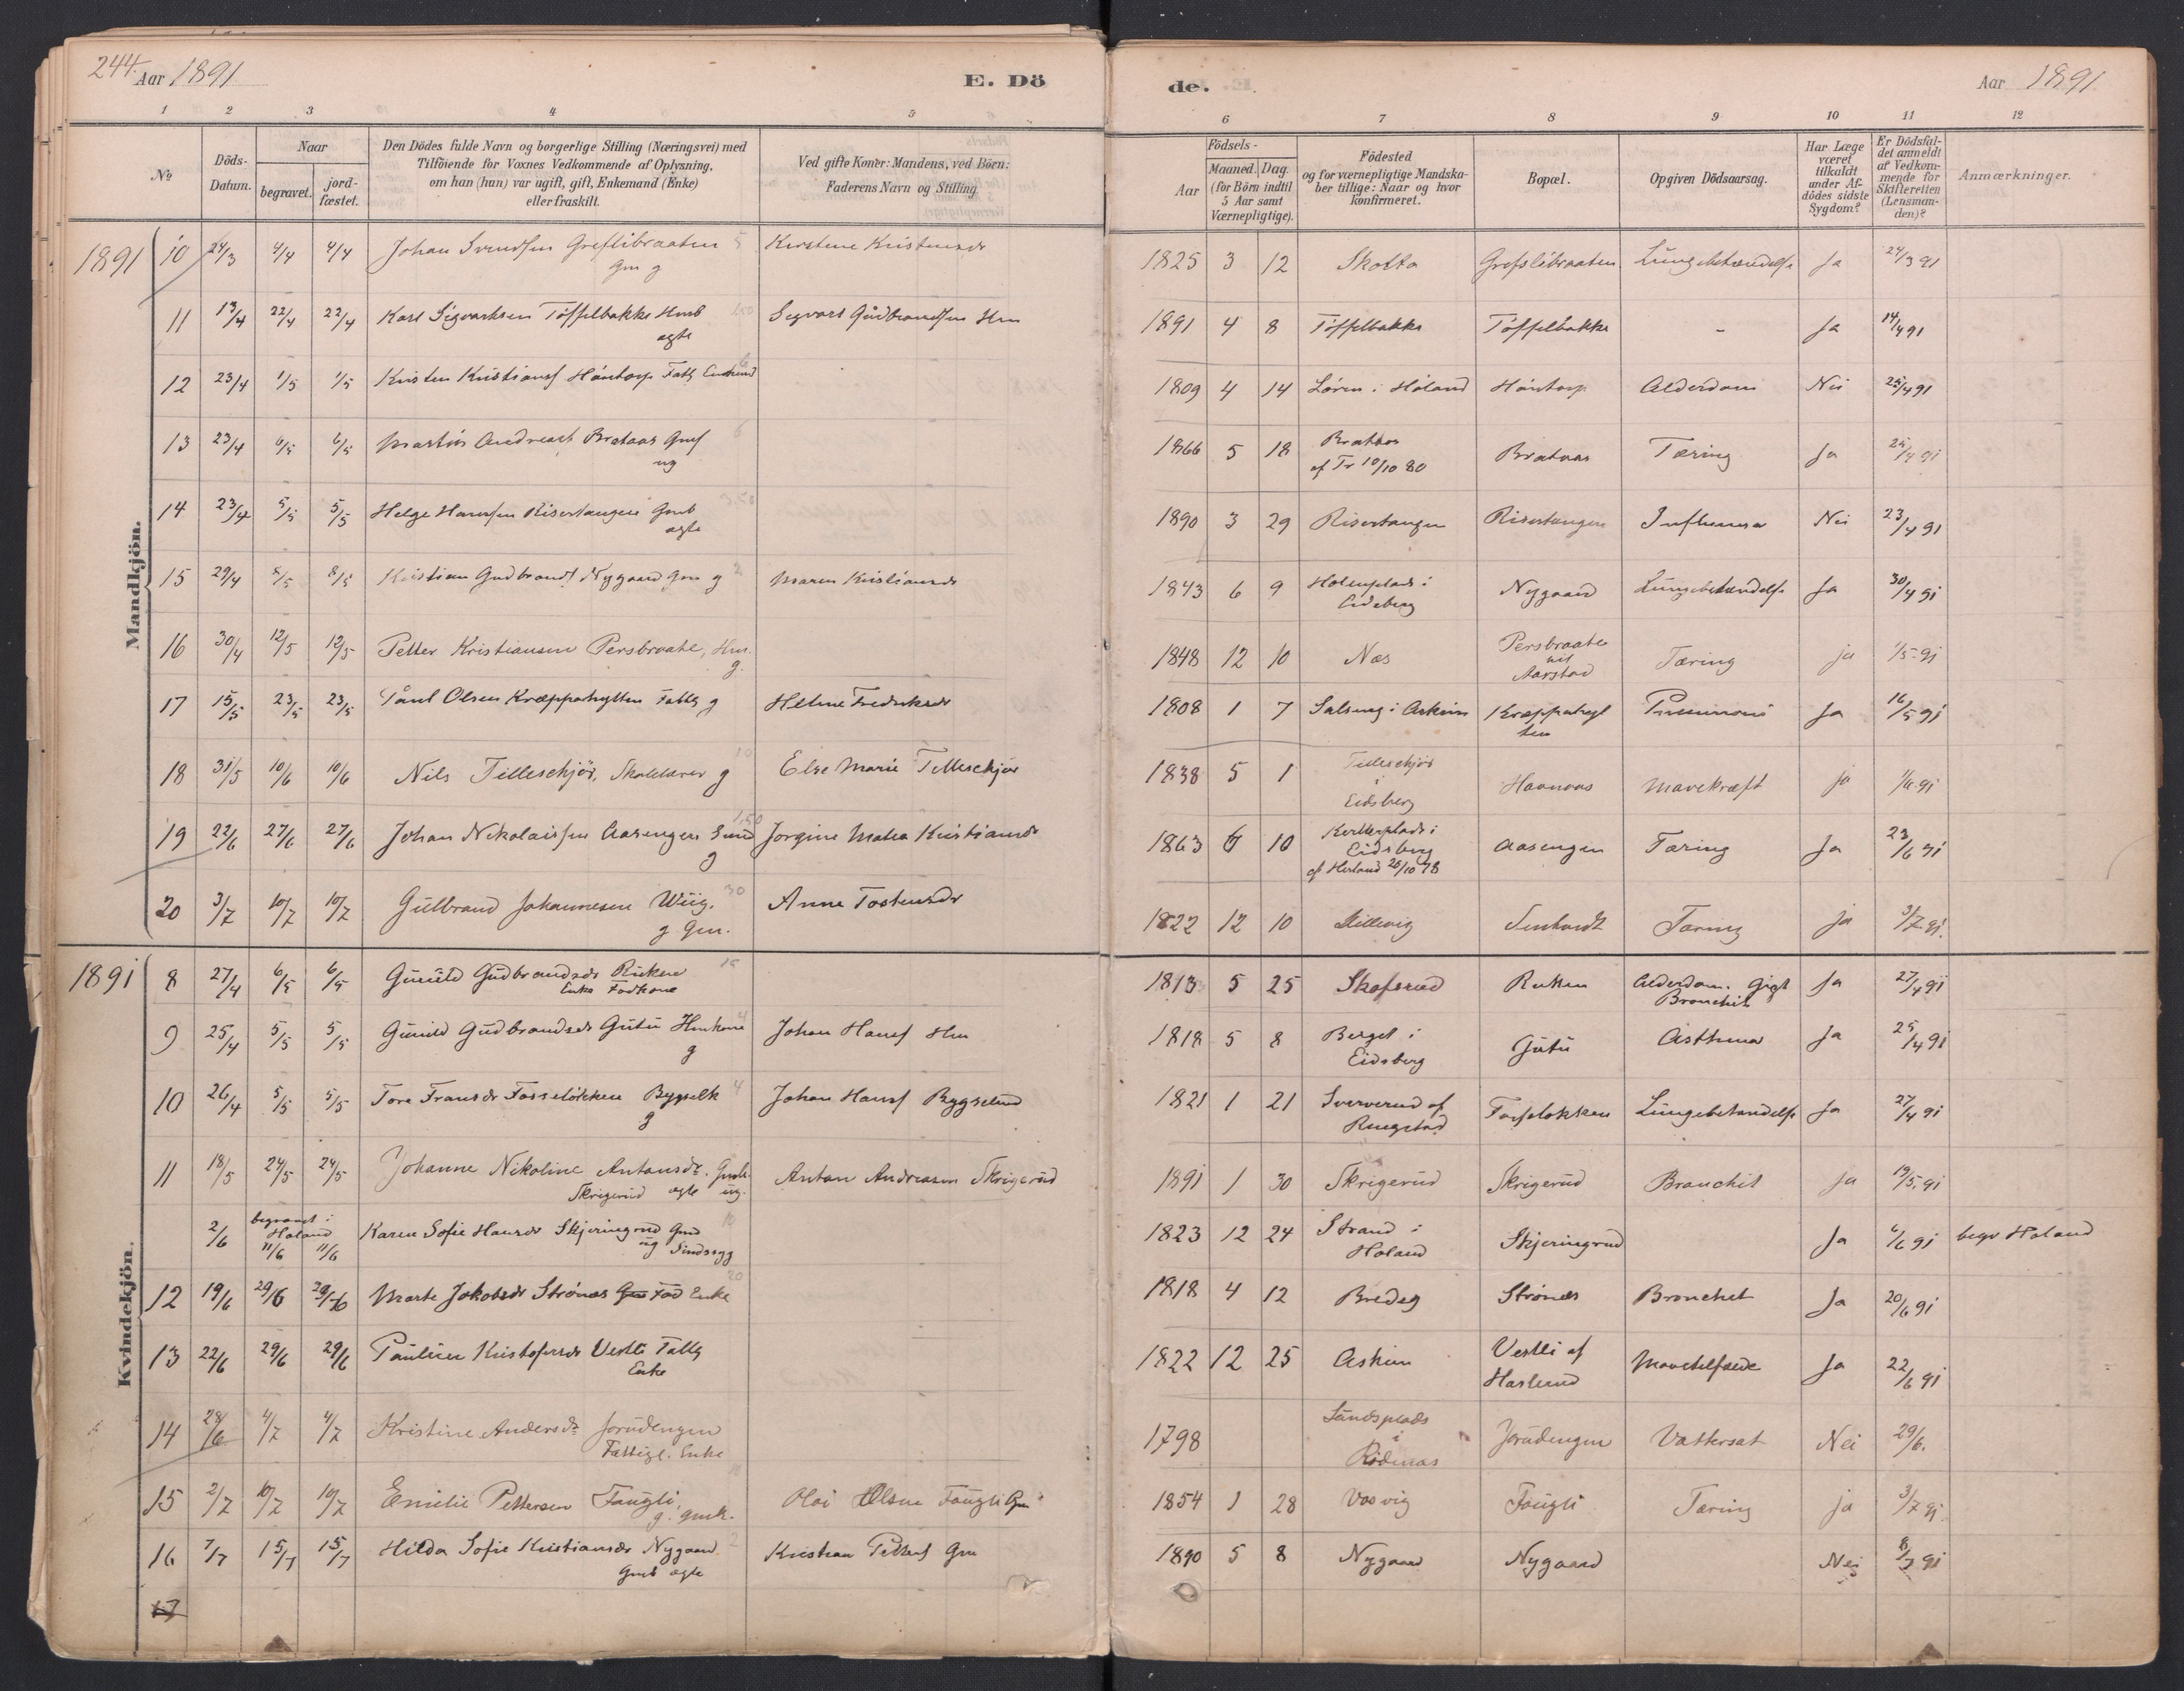 244.
Aar 1891
E. Dö
de.
Aar 1891.
1 2 3 4 5 6 7 8 9 10 11 12
No
Döds-Datum.
Naar
begravet.
jord-fæstet.
Den Dödes fulde Navn og borgerlige Stilling (Næringsvei) med
Tilföiende for Voxnes Vedkommende af Oplysning,
om han (hun) var ugift, gift, Enkemand (Enke)
eller fraskilt.
Ved gifte Koner: Mandens, ved Börn:
Faderens Navn og Stilling.
Födsels-
Aar
Maaned.
Dag.
(for Börn indtil
5 Aar samt
Værnepligtige).
Födested
og for værnepligtige Mandska-
ber tillige: Naar og hvor
konfirmeret.
Bopæl.
Opgiven Dödsaarsag.
Har Læge
været
tilkaldt
under Af-
dödes sidste
Sygdom?
Er Dödsfal-
det anmeldt
af Vedkom-
mende for
Skifteretten
(Lensman-
den)?
Anmærkninger.
Mandkjön.
1891 10 24/3 4/4 4/4 Johan Svendsen Greflibraaten Gm g 5 Kirstine Kristensdr 1825 3 12 Skotta Grefslibraaten Lungebetændelse Ja 24/3 91
11 13/4 22/4 22/4 Karl Sigvartsen Töffelbakke Hmb ægte 1.50 Segvart Gudbrandsen Hm 1891 4 8 Töffelbakke Töffelbakke - Ja 14/4 91
12 23/4 1/5 1/5 Kristen Kristians Hántorp Fattg Enkemd 6 1809 4 14 Lören i Höland Hántorp Alderdom Nei 25/4 91
13 23/4 6/5 6/5 Martin Andreas Brataas Gmf ug 6 1866 5 18 Brataas af Tr 10/10 80 Brataas Tæring Ja 25/4 91
14 23/4 5/5 5/5 Helge Hansen Risertangen Gmb ægte 3.50 1890 3 29 Risertangen Risertangen Influensa Nei 23/4 91
15 29/4 8/5 8/5 Kristian Gudbrands Nygaard Gm g 2 Maren Kristiansdr 1843 6 9 Holenplads i Eidsberg Nygaard Lungebetændelse Ja 30/4 91
16 30/4 12/5 12/5 Petter Kristiansen Persbraate, Hm. g. 1848 12 10 Næs Persbraate Aarstad Tæring ja 1/5-91
17 15/5 23/5 23/5 Paul Olsen Kræppahytten Fattg g Helene Fredriksdr 1808 1 7 Salseng i Askim Kræppahytten Ja 16/5 91
18 31/5 10/6 10/6 Nils Tilleschjör, Skolelærer g 10 Else Marie Tilleschjör 1838 5 1 Tilleschjör i Eidsberg Haanaas Mavekræft ja 1/6 91
19 22/6 27/6 27/6 Johan Nikolaissen Aasengen Smd g 1.50 Jorgine Matea Kristiansdr 1863 6 10 Eidsberg af Herland 26/10 78 Aasengen Tæring Ja 23/6 91
20 3/7 10/7 10/7 Gulbrand Johannesen Wiig. g Gm. 30 Anne Tostensdr 1822 12 10 Lillevig Tæring ja 3/7-91.
Kvindekjön.
1891 8 27/4 6/5 6/5 Gunild Gudbrandsdr Rukene Enke Fodkone 15 1813 5 25 Skofsrud Rukene Alderdom. Gigt Bronchit Ja 27/4 91
9 25/4 5/5 5/5 Gunild Gudbrandsdr Gutu Hmkone g 4 Johan Hans Hm 1818 5 8 Berget i Eidsberg Gutu Asthma Ja 25/4 91
10 26/4 5/5 5/5 Tore Fransdr Fosselökken Bygselk g 4 Johan Hans Bygselmd 1821 1 21 Sververud af Ringstad Fosselökken Lungebetændelse Ja 27/4 91
11 18/5 24/5 24/5 Johanne Nikoline Antonsdr. Gmb. Skrigerud ægte ug. Anton Andreasen Skrigerud 1891 1 30 Skrigerud Skrigerud Bronchit ja 19/5. 91
2/6 begravet i Höland 11/6 11/6 Karen Sofie Hansdr Skjeringrud Gmd ug Sindssyg 10 1823 12 24 Strand i Höland Skjeringrud Ja 6/6 91 begr Höland
12 19/6 29/6 29/6 Marte Jakobsdr Strönæs Fød Enke 20 1818 4 12 Bredeg Strönæs Bronchit Ja 20/6 91
13 22/6 29/6 29/6 Pauline Kristofersdr Vestli Fattg Enke 1822 12 25 Askim Vestli af Haslerud Mavetilfælde Ja 22/6 91
14 28/6 4/7 4/7 Kristine Andersdr Jorudengen Fattigl. Enke 1798 Sundsplads i Rödenæs Jorudengen Vattersot Nei 29/6.
15 2/7 10/7 10/7 Emilie Pettersen Faugli, g. gmk. 10 Olai Olsen Faugli Gm 1854 1 28 Vasvig Faugli Tæring ja 3/7 91.
16 7/7 15/7 15/7 Hilda Sofie Kristiansdr Nygaard Gmb ægte 2 Kristian Petters Gm 1890 5 8 Nygaard Nygaard Nei 8/7 91
17